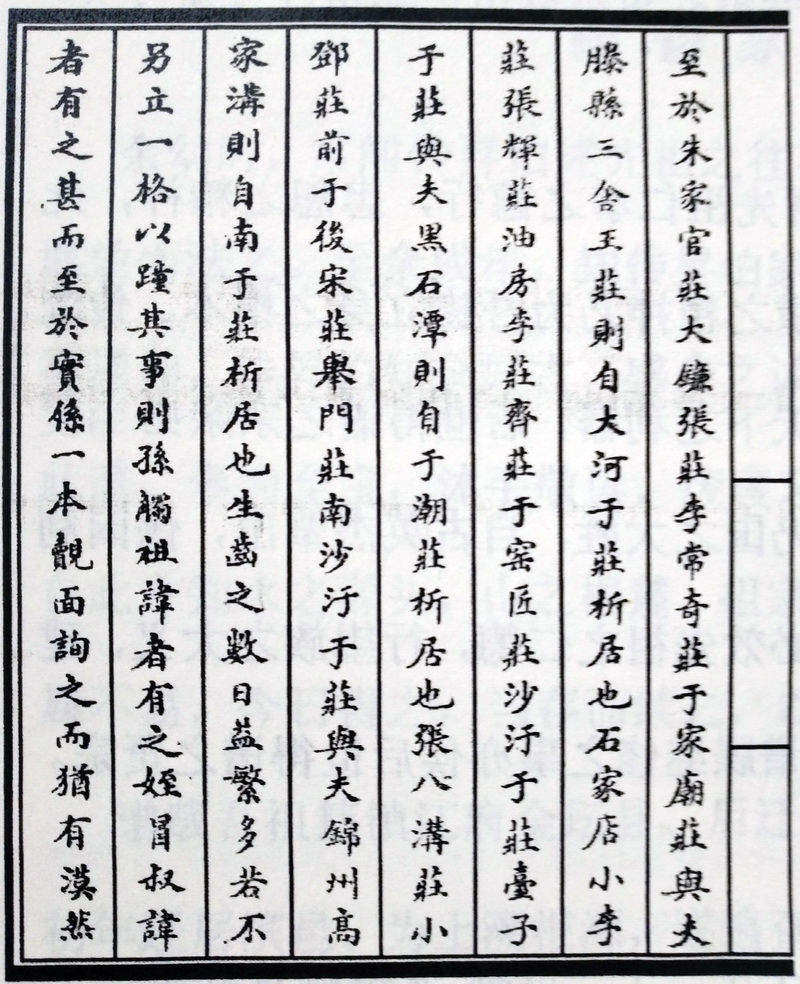 至於朱家官莊大鐮張莊李常奇莊于家廟莊與夫
滕縣三舍王莊則自大河于莊析居也石家店小李
莊張輝莊油房李莊齊莊于窑匠莊沙汙于莊臺子
于莊與夫黑石潭則自于潮莊析居也張八溝莊小
鄧莊前于後宋莊舉門莊南沙汙于莊與夫錦州高
家溝則自南于莊析居也生齒之數日益繁多若不
另立一格以踵其事則孫觸祖諱者有之姪冒叔諱
者有之甚而至於實係一本覿面詢之而猶有漠然